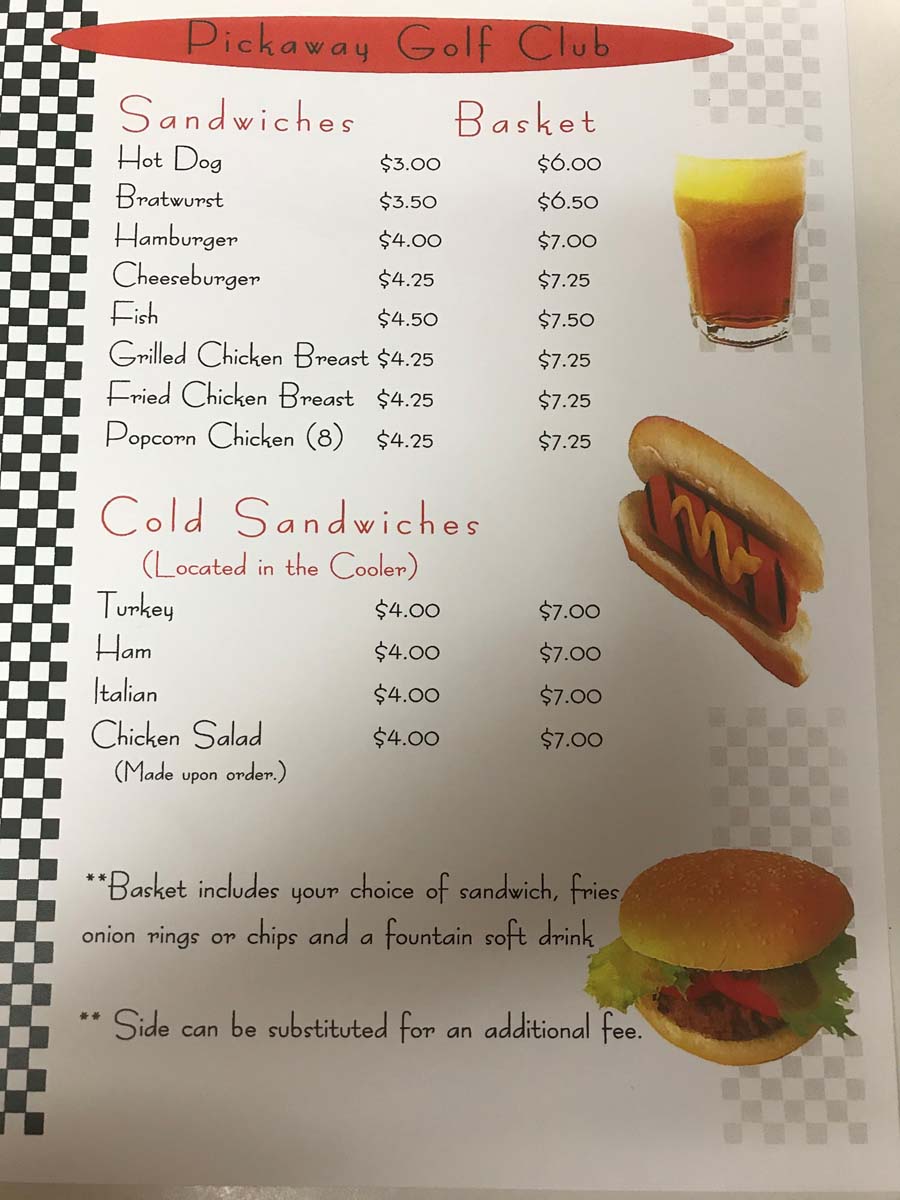 Pickaway Golf Club
Sandwiches Basket
Hot Dog $3.00 $6.00
Bratwurst $3.50 $6.50
Hamburger $4.00 $7.00
Cheeseburger $4.25 $7.25
Fish $4.50 $7.50
Grilled Chicken Breast $4.25 $7.25
Fried Chicken Breast $4.25 $7.25
Popcorn Chicken (8) $4.25 $7.25
Cold Sandwiches
(Located in the Cooler)
Turkey $4.00 $7.00
Ham $4.00 $7.00
Italian $4.00 $7.00
Chicken Salad $4.00 $7.00
(Made upon order.)
**Basket includes your choice of sandwich, fries,
onion rings or chips and a fountain soft drink
** Side can be substituted for an additional fee.